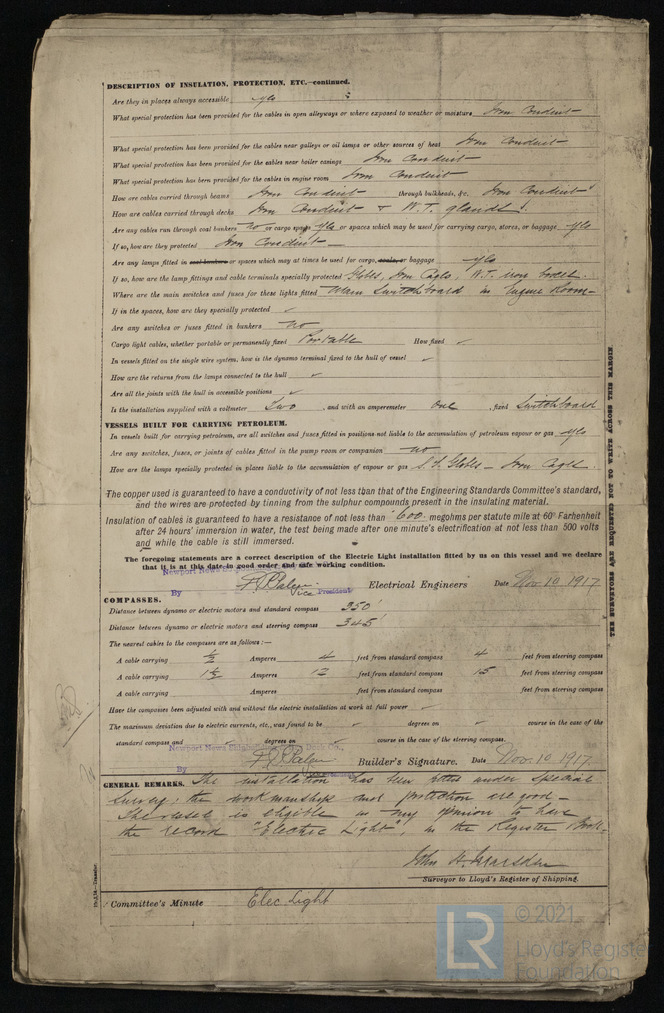 DESCRIPTION OF INSULATION, PROTECTION, ETC.—continued.
Are they in places always accessible yes
What special protection has been provided for the cables in open alleyways or where exposed to weather or moisture Iron Conduit
What special protection has been provided for the cables near galleys or oil lamps or other sources of heat Iron Conduit
What special protection has been provided for the cables near boiler casings Iron Conduit
What special protection has been provided for the cables in engine room Iron Conduit
How are cables carried through beams Iron Conduit through bulkheads, &c. Iron Conduit
How are cables carried through decks Iron Conduit & W.T. glands.
Are any cables run through coal bunkers no or cargo spaces yes or spaces which may be used for carrying cargo, stores, or baggage yes
If so, how are they protected Iron Conduit
Are any lamps fitted in coal bunkers or spaces which may at times be used for cargo, coals, or baggage yes
If so, how are the lamp fittings and cable terminals specially protected Globes, Iron Cages, W.T. iron boxes.
Where are the main switches and fuses for these lights fitted Main Switchboard in Engine Room
If in the spaces, how are they specially protected ✓
Are any switches or fuses fitted in bunkers no
Cargo light cables, whether portable or permanently fixed Portable How fixed ✓
In vessels fitted on the single wire system, how is the dynamo terminal fixed to the hull of vessel ✓
How are the returns from the lamps connected to the hull ✓
Are all the joints with the hull in accessible positions ✓
Is the installation supplied with a voltmeter Two, and with an amperemeter one, fixed Switchboard
VESSELS BUILT FOR CARRYING PETROLEUM.
In vessels built for carrying petroleum, are all switches and fuses fitted in positions not liable to the accumulation of petroleum vapour or gas yes
Are any switches, fuses, or joints of cables fitted in the pump room or companion no
How are the lamps specially protected in places liable to the accumulation of vapour or gas Globes - Iron Cages.
The copper used is guaranteed to have a conductivity of not less than that of the Engineering Standards Committee's standard,
and the wires are protected by tinning from the sulphur compounds present in the insulating material.
Insulation of cables is guaranteed to have a resistance of not less than 600 megohms per statute mile at 60° Farhenheit
after 24 hours' immersion in water, the test being made after one minute's electrification at not less than 500 volts
and while the cable is still immersed.
The foregoing statements are a correct description of the Electric Light installation fitted by us on this vessel and we declare
that it is at this date in good order and safe working condition.
Newport News
By Vice President Electrical Engineers Date Nov 10 1917
COMPASSES.
Distance between dynamo or electric motors and standard compass 350'
Distance between dynamo or electric motors and steering compass 345'
The nearest cables to the compasses are as follows:—
A cable carrying ½ Amperes 4 feet from standard compass 4 feet from steering compass
A cable carrying 1½ Amperes 12 feet from standard compass 15 feet from steering compass
A cable carrying Amperes feet from standard compass feet from steering compass
Have the compasses been adjusted with and without the electric installation at work at full power ✓
The maximum deviation due to electric currents, etc., was found to be ✓ degrees on ✓ course in the case of the
standard compass and ✓ degrees on ✓ course in the case of the steering compass.
Newport News Shipbuilding & Dry Dock Co.,
By Builder's Signature. Date Nov. 10 1917.
GENERAL REMARKS. The installation has been fitted under special
survey; the workmanship and protection are good -
The vessel is eligible in my opinion to have
the record "Electric Light", in the Register Book.
John H. Marsden
Surveyor to Lloyd's Register of Shipping.
Committee's Minute Elec Light
THE SURVEYORS ARE REQUESTED NOT TO WRITE ACROSS THIS MARGIN
LR
© 2021
Lloyd's Register
Foundation